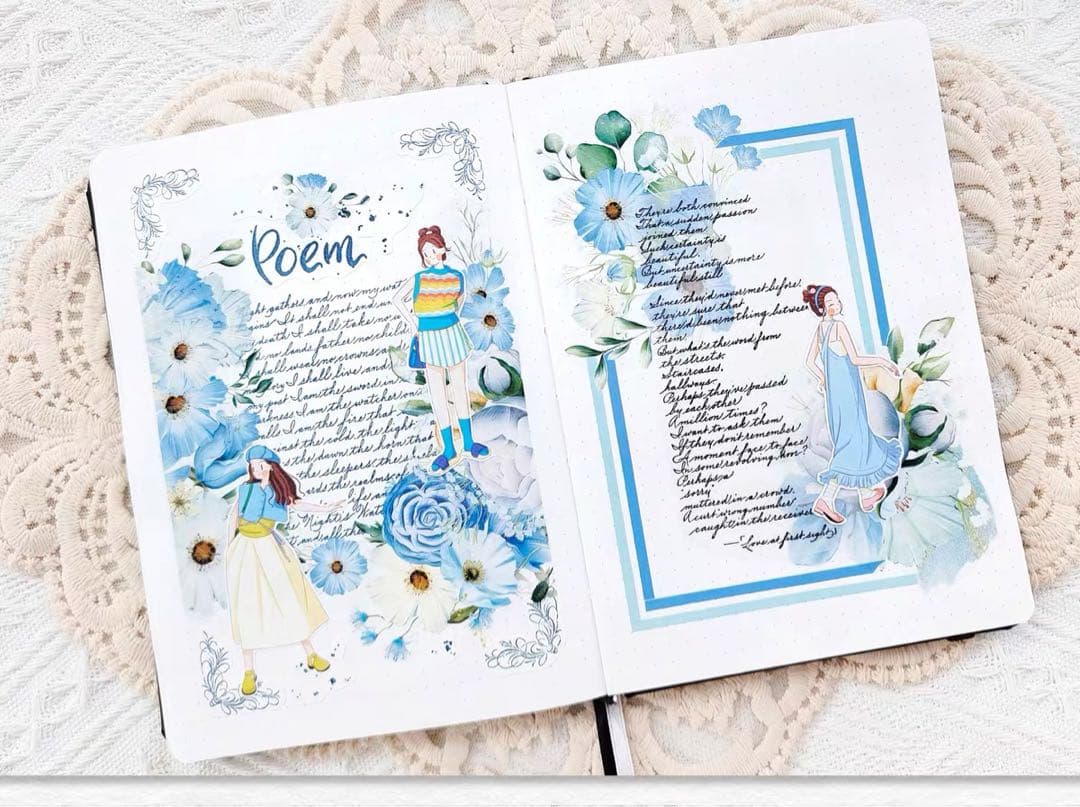 Poem
ght gathers, and now my wat
ins. I shall not end un
death. I shall take no w
no lands, father no child
shall wear no crowns and
ory. I shall live and
my post. I am the sword in
kness. I am the watcher on
alls. I am the fire that
inst the cold, the light
the dawn, the horn that
the sleepers, the shiel
ards the realms of
life an
he Night's Wat
t and all the
They're both convinced
That a sudden passion
joined them
Such certainty is
beautiful.
But uncertainty is more
beautiful still
Since they'd never met before,
they're sure that
there'd been nothing between
them
But what's the word from
the streets,
Staircases,
hallways-
Perhaps they've passed
by each other
A million times?
I want to ask them
If they don't remember
A moment face to face
In some revolving door?
Perhaps a
"sorry"
muttered in a crowd,
A curt wrong number
caught in the receiver
—「Love at first sight」